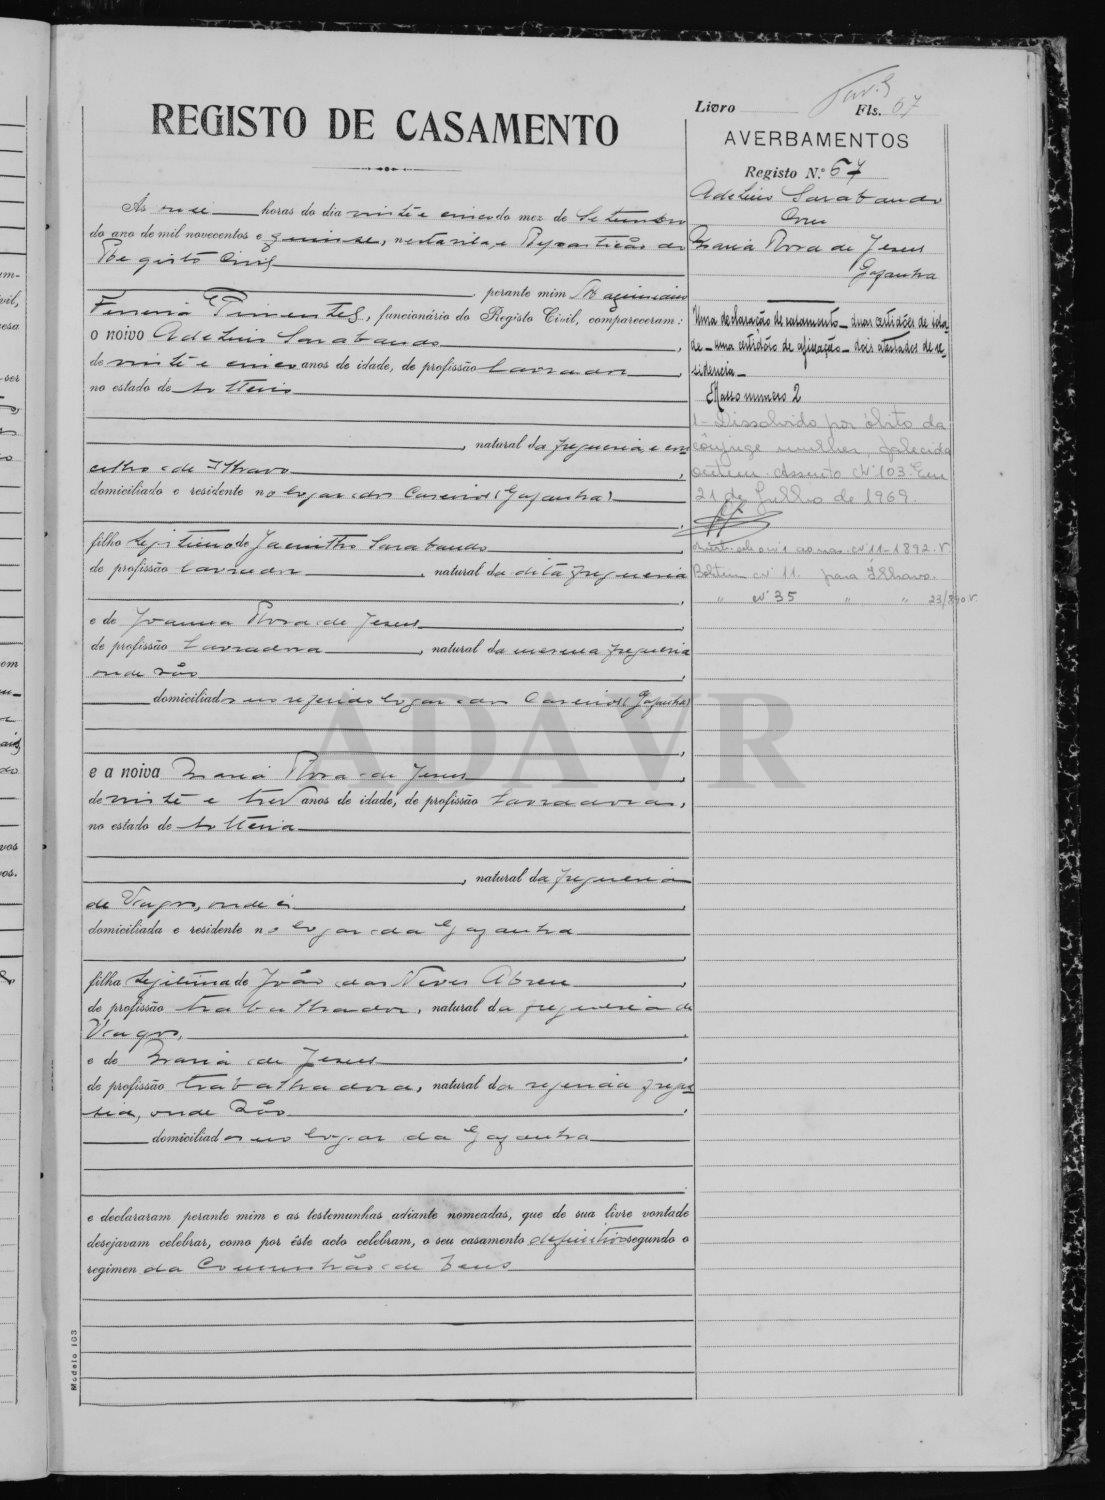 Livro Fls. 67
REGISTO DE CASAMENTO
AVERBAMENTOS
Registo N.º 67
Adelino Sarabando
com
Maria Rosa de Jesus
Gafanha
Às onze horas do dia vinte e cinco do mez de Setembro
do ano de mil novecentos e quinze, nesta vila e Repartição do
Registo Civil
perante mim
Ferreira Pimentel, funcionário do Registo Civil, compareceram:
o noivo Adelino Sarabando,
de vinte e cinco anos de idade, de profissão lavrador,
no estado de solteiro
, natural da freguesia e con
celho de Ilhavo,
domiciliado e residente no logar dos Caseiros (Gafanha)
filho legitimo de Jacintho Sarabando,
de profissão lavrador, natural da dita freguesia
,
e de Joanna Rosa de Jesus,
de profissão lavradora, natural da mesma freguesia
onde são,
domiciliados no referido logar dos Caseiros (Gafanha)
e a noiva Maria Rosa de Jesus,
de vinte e tres anos de idade, de profissão lavradora,
no estado de solteira
, natural da freguesia
de Vagos, onde é,
domiciliada e residente no logar da Gafanha
filha legitima de João das Neves Abreu,
de profissão trabalhador, natural da freguesia de
Vagos,
e de Maria de Jesus,
de profissão trabalhadora, natural da referida fregue
sia, onde são,
domiciliados no logar da Gafanha
e declararam perante mim e as testemunhas adiante nomeadas, que de sua livre vontade
desejavam celebrar, como por êste acto celebram, o seu casamento definitivo segundo o
regimen da Comunhão de bens
Uma declaração de casamento _ duas certidões de ida-
de _ uma certidão de afixação _ dois atestados de re-
sidencia _
Masso numero 2
1 - Dissolvido por óbito da
cônjuge mulher, falecida
ontem. Assento Nº 103. Em
21 de Julho de 1969.
Nº 11-1892. V.
Boletim Nº 11 para Ilhavo.
" Nº 35 " " 23/890 V.
Modelo 163
ADAVR